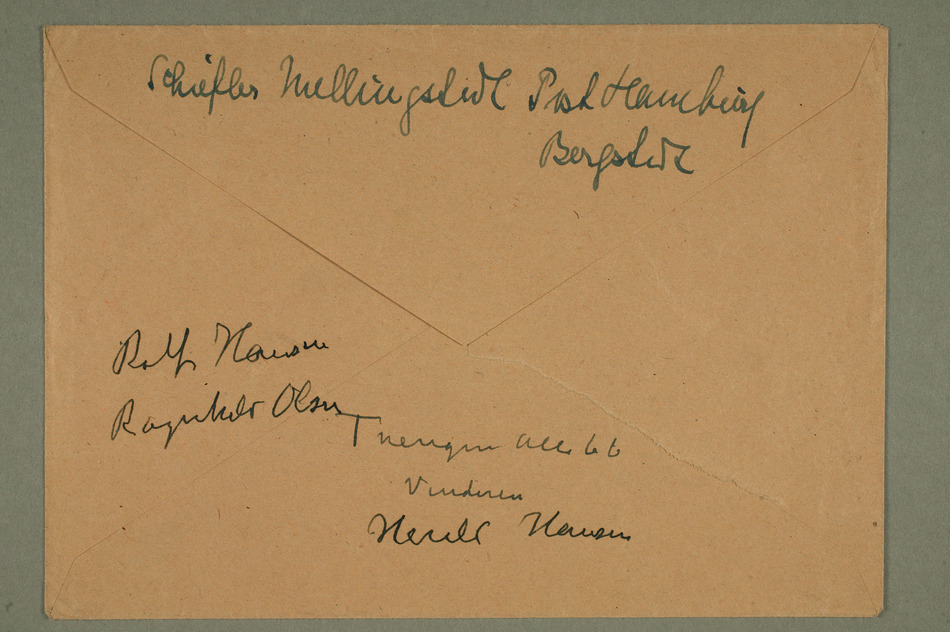 Schiefler Mellingstedt Post Hamburg
Bergstedt
Rolf Hansen
Ragnhild Olsen
Alle 6 b
Vinderen
Harald Hansen